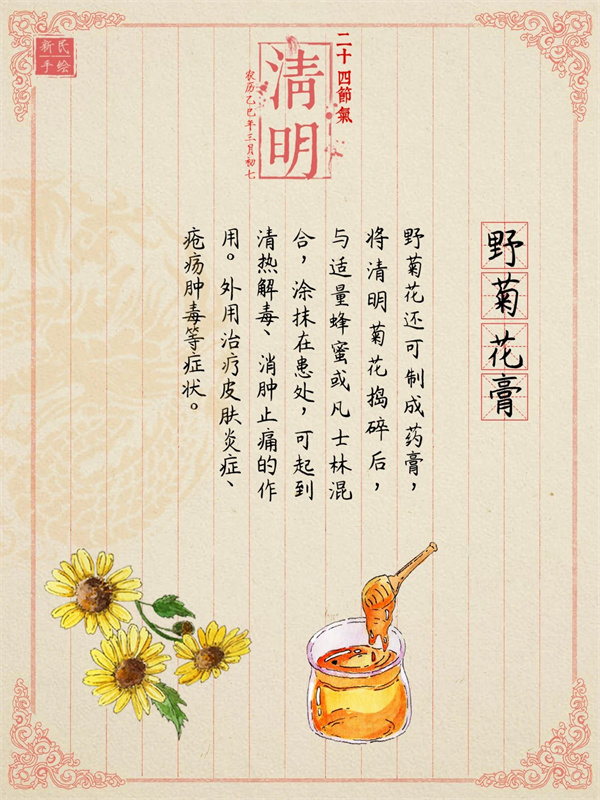 新民
手绘
二十四節氣
清明
农历乙巳年三月初七
野菊花膏
野菊花还可制成药膏，
将清明菊花捣碎后，
与适量蜂蜜或凡士林混
合，涂抹在患处，可起到
清热解毒、消肿止痛的作
用。外用治疗皮肤炎症、
疮疡肿毒等症状。